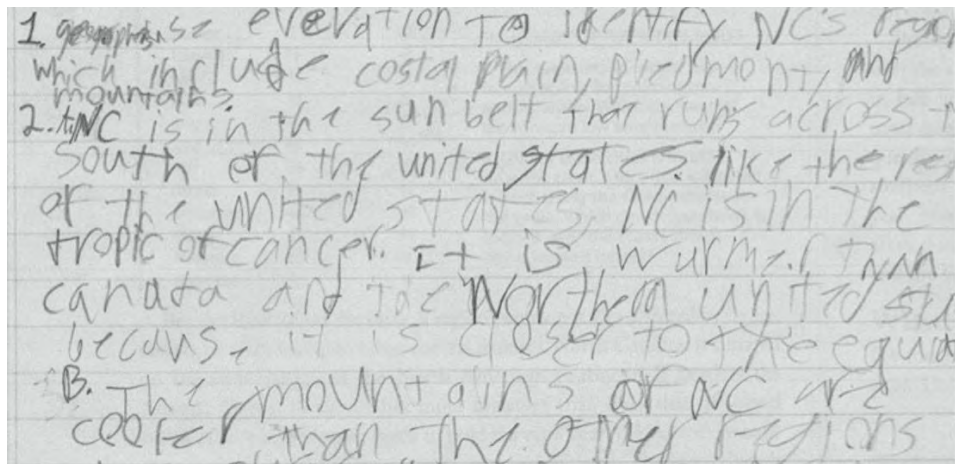 1. use elevation to identify NC's region
which include costal plain, piedmont, and
mountains.
2. A. NC is in the sun belt that runs across
south of the united states. like the res
of the united states, NC is in the
tropic of cancer. It is wurmer than
canada and the Northern united sta
because it is closer to the equa
B. The mountains of NC are
cooler than the other regions